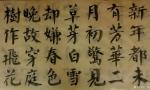 新年都未
有芳華二
月初驚見
草芽白雪
却嫌春色
晚故穿庭
樹作飛花